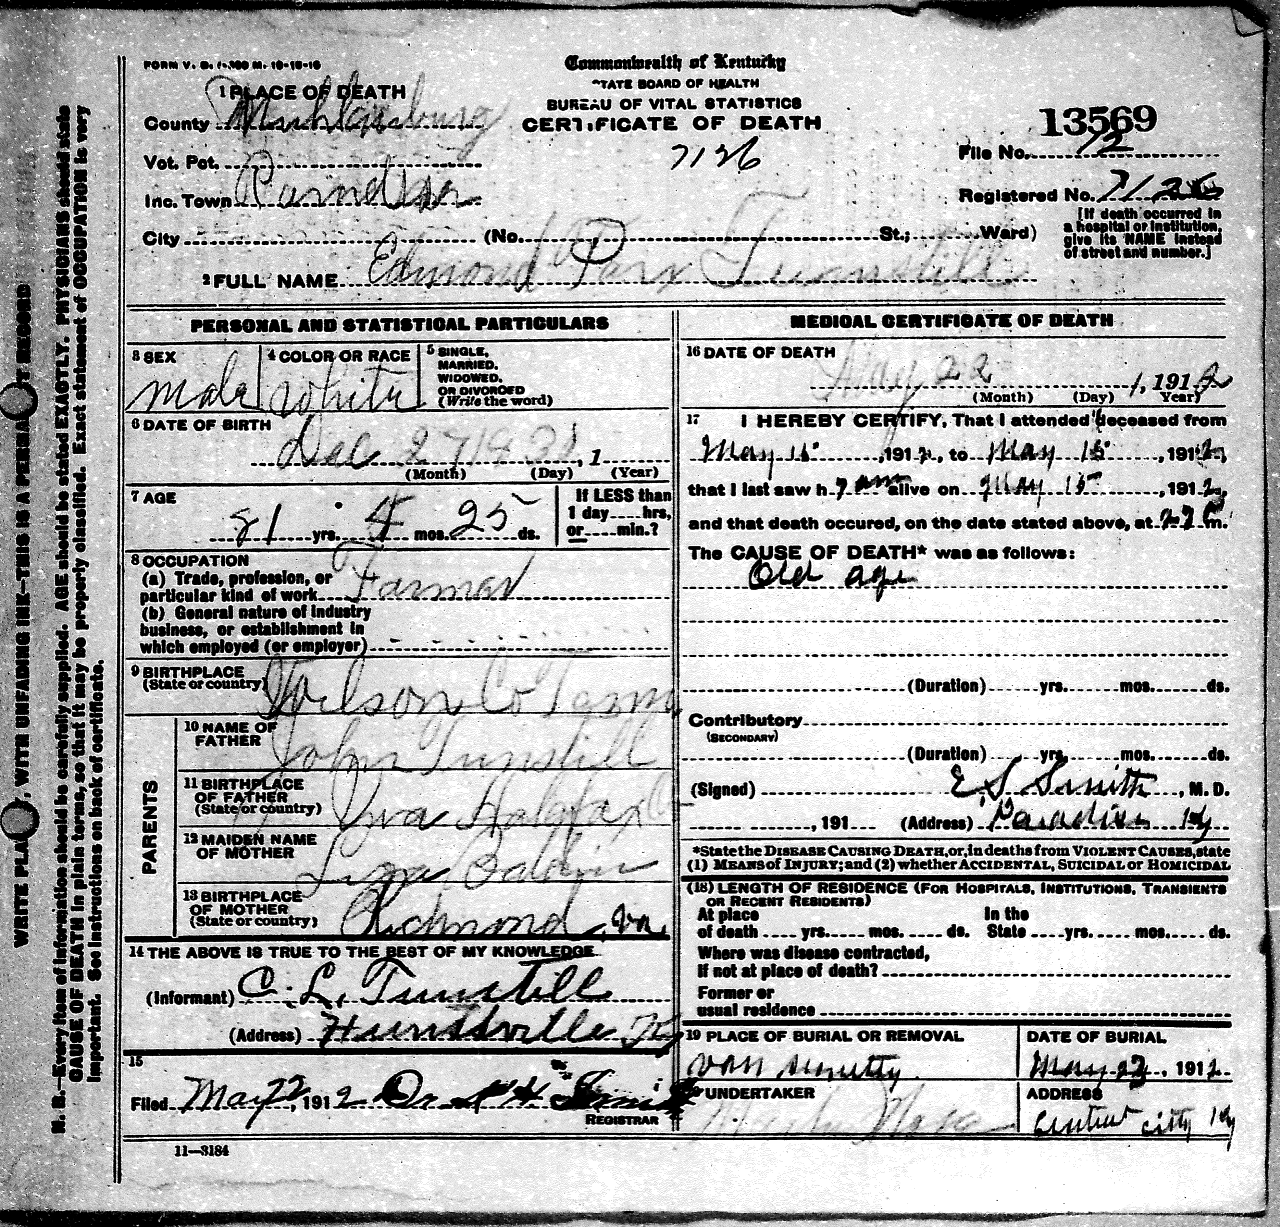 FORM V. S. 1-300 M. 10-18-10
Commonwealth of Kentucky
STATE BOARD OF HEALTH
BUREAU OF VITAL STATISTICS
CERTIFICATE OF DEATH
1 PLACE OF DEATH
County Muhlenburg
13569
Vot. Pct.
7126
File No. 12
Inc. Town
Registered No. 7126
City (No. St.; Ward)
[If death occurred in a hospital or institution, give its NAME instead of street and number.]
2 FULL NAME Edmond Parx Tunnstill
PERSONAL AND STATISTICAL PARTICULARS
3 SEX
male
4 COLOR OR RACE
White
5 SINGLE, MARRIED, WIDOWED, OR DIVORCED (Write the word)
6 DATE OF BIRTH
Dec 27 1831, 1
(Month) (Day) (Year)
7 AGE
81 yrs. 4 mos. 25 ds.
If LESS than 1 day hrs, or min.?
8 OCCUPATION
(a) Trade, profession, or particular kind of work Farmer
(b) General nature of industry business, or establishment in which employed (or employer)
9 BIRTHPLACE (State or country) Wilson Co Tenn
PARENTS
10 NAME OF FATHER John Tunstill
11 BIRTHPLACE OF FATHER (State or country) Halifax
12 MAIDEN NAME OF MOTHER
13 BIRTHPLACE OF MOTHER (State or country) Richmond, Va.
14 THE ABOVE IS TRUE TO THE BEST OF MY KNOWLEDGE
(Informant) C. L. Tunstill
(Address) Huntsville Ky
15
Filed May 22, 1912 Dr
REGISTRAR
11—3184
MEDICAL CERTIFICATE OF DEATH
16 DATE OF DEATH
May 22 1, 1912
(Month) (Day) Year)
17 I HEREBY CERTIFY, That I attended deceased from
May 15, 1912, to May 15, 1912,
that I last saw h alive on May 15, 1912,
and that death occured, on the date stated above, at m.
The CAUSE OF DEATH* was as follows:
Old age
(Duration) yrs. mos. ds.
Contributory
(SECONDARY)
(Duration) yrs. mos. ds.
(Signed) E. S. Smith, M. D.
, 191 (Address) Paradise Ky
*State the DISEASE CAUSING DEATH, or, in deaths from VIOLENT CAUSES, state
(1) MEANS of INJURY; and (2) whether ACCIDENTAL, SUICIDAL or HOMICIDAL
(18) LENGTH OF RESIDENCE (FOR HOSPITALS, INSTITUTIONS, TRANSIENTS
OR RECENT RESIDENTS)
At place of death yrs. mos. ds. In the State yrs. mos. ds.
Where was disease contracted,
If not at place of death?
Former or
usual residence
19 PLACE OF BURIAL OR REMOVAL
DATE OF BURIAL
May 23, 1912
UNDERTAKER
ADDRESS
Central City Ky
WRITE PLAINLY, WITH UNFADING INK—THIS IS A PERMANENT RECORD
N. B.—Every item of information should be carefully supplied. AGE should be stated EXACTLY. PHYSICIANS should state
CAUSE OF DEATH in plain terms, so that it may be properly classified. Exact statement of OCCUPATION is very
important. See instructions on back of certificate.